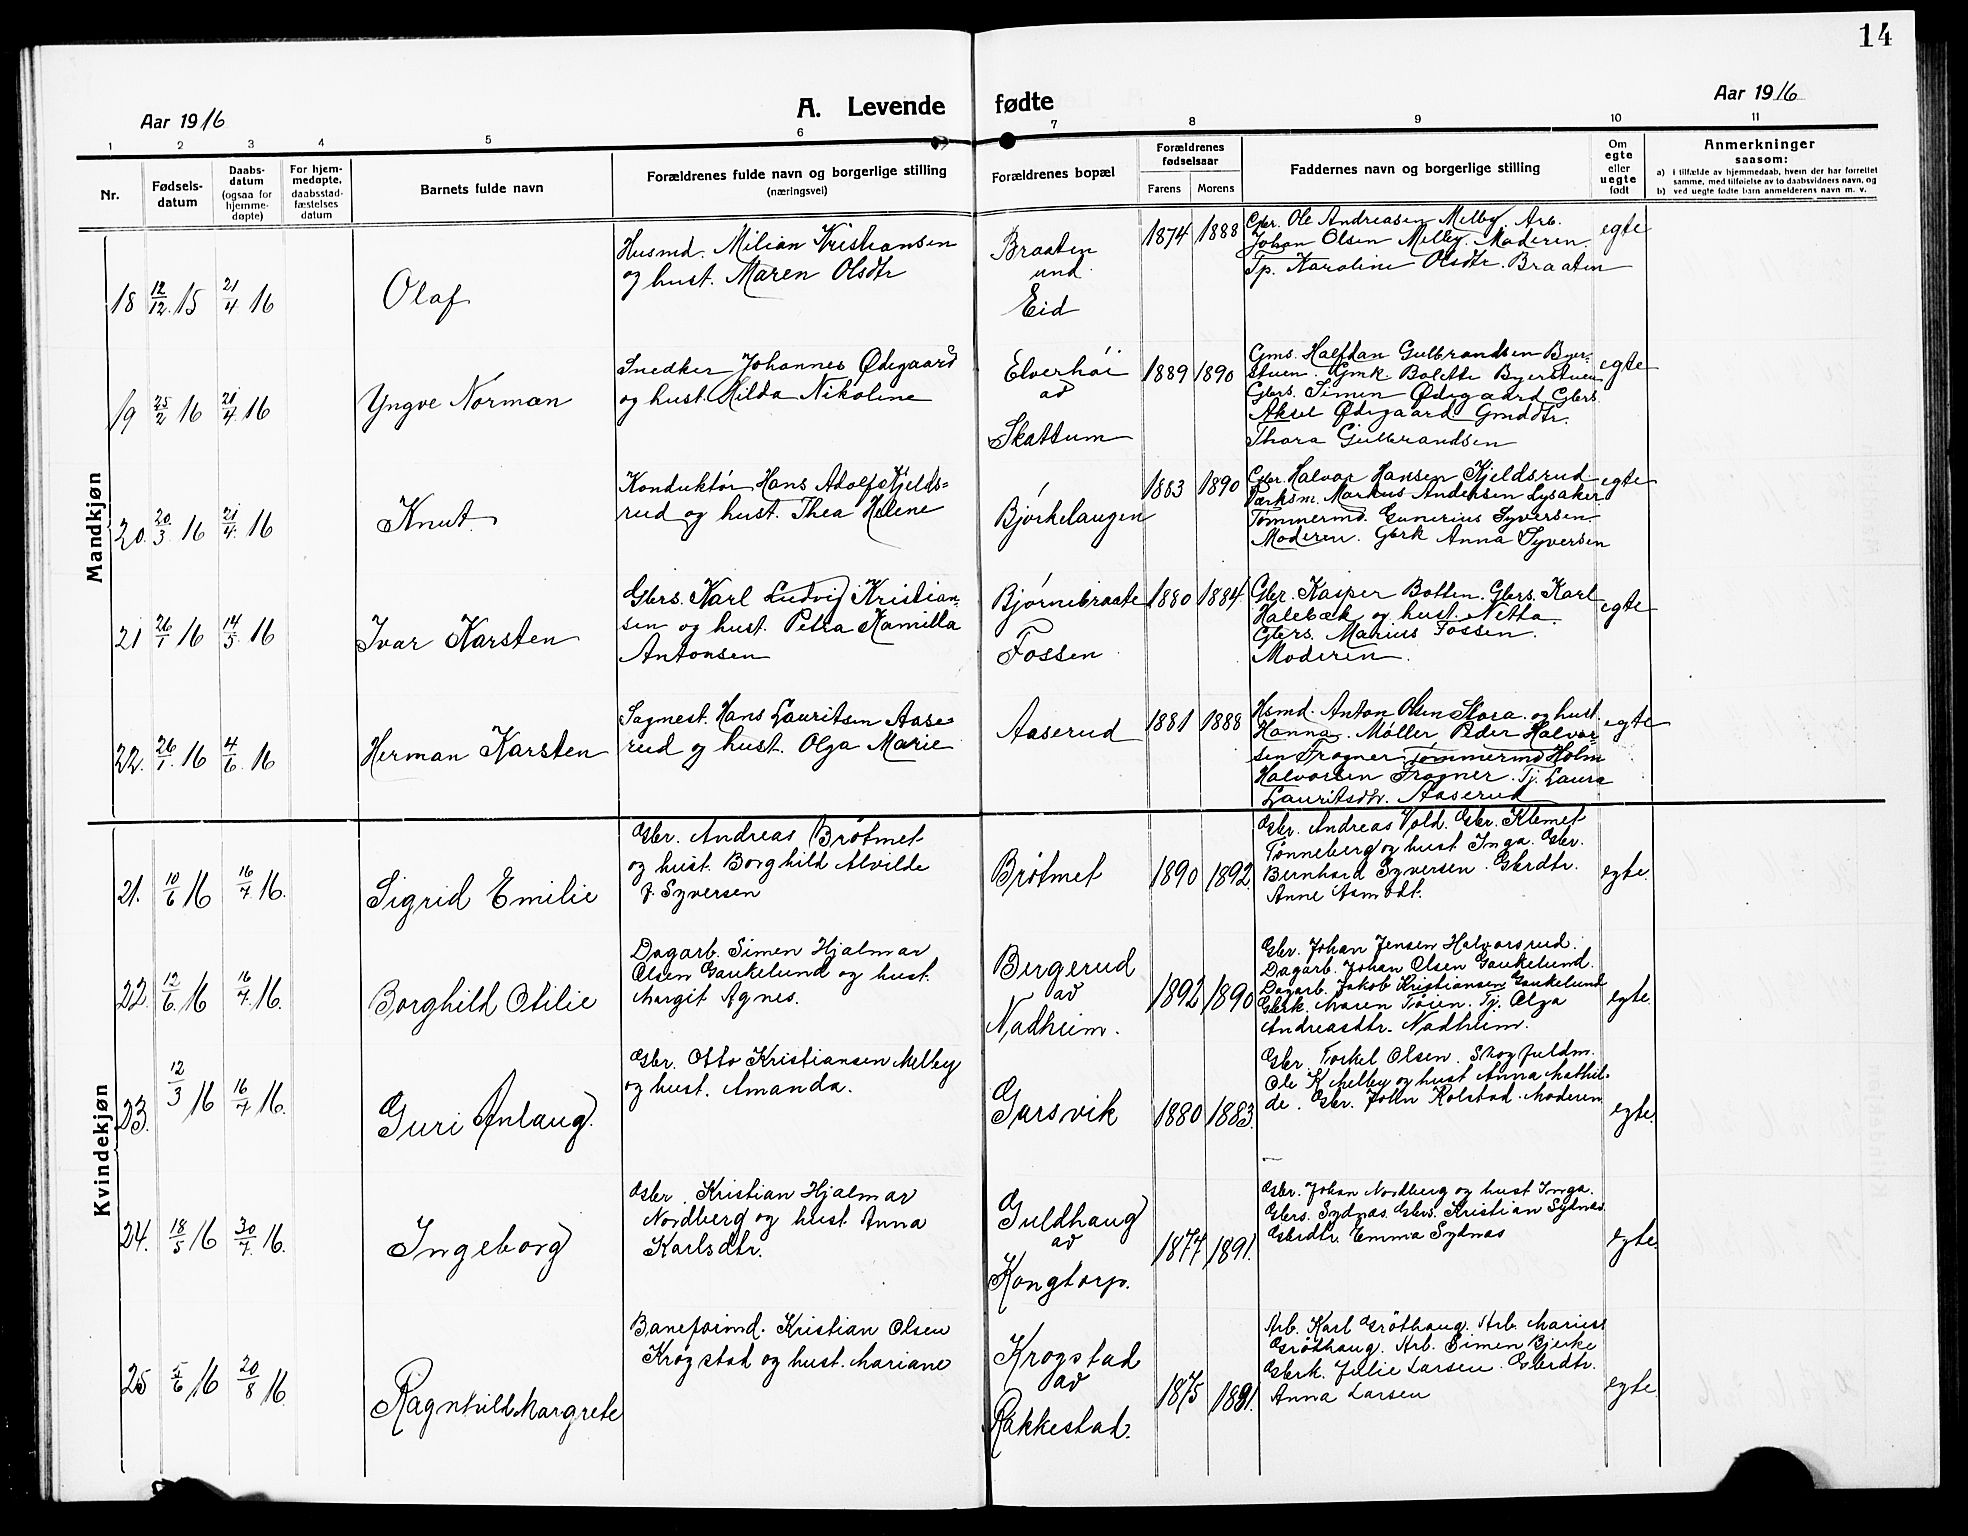 14
Aar 1916
A. Levende fødte
Aar 1916
1 2 3 4 5 6 7 8 9 10 11
Nr.
Fødsels-
datum
Daabs-
datum
(ogsaa for
hjemme-
døpte)
For hjem-
medøpte,
daabsstad-
fæstelses
datum
Barnets fulde navn
Forældrenes fulde navn og borgerlige stilling
(næringsvei)
Forældrenes bopæl
Forældrenes
fødselsaar
Farens Morens
Faddernes navn og borgerlige stilling
Om
egte
eller
uegte
født
Anmerkninger
saasom:
a) i tilfælde av hjemmedaab, hvem der har forrettet
samme, med tilføielse av to daabsvidners navn, og
b) ved uegte fødte barn anmelderens navn m. v.
Mandkjøn
18 12/12 15 21/4 16
Olaf
Husmd. Milian Kristiansen
og hust. Maren Olsdtr
Braaten
und
Eid
1874 1888
Gbr. Ole Andreasen Melby. Arb.
Johan Olsen Melby. Moderen.
Tp. Karoline Olsdtr. Braaten
egte
19 25/2 16 21/4 16
Yngve Norman
Snedker Johannes Ødegaard
og hust. Hilda Nikoline
Elverhøi
av
Skattum
1889 1890
Gms. Halfdan Gulbrandsen Byer-
stuen. Gmk. Bolette Byerstuen
Gbrs. Simen Ødegaard Gbrs.
Aksel Ødegaard. Gmddtr.
Thora Gulbrandsen
egte
20. 20/3 16 21/4 16
Knut.
Konduktør Hans Adolf Kjelds=
rud og hust. Thea Helene
Bjørkelangen
1883 1890
Gbr. Halvor Hansen Kjeldsrud
Værksm. Markus Andersen Lysaker
Tømmermd. Gunerius Syversen.
Moderen. Gbrk Anna Syversen
egte
21 26/1 16 14/5 16
Ivar Karsten
Gbrs. Karl Ludvig Kristian-
sen og hust. Petra Kamilla
Antonsen
Bjørnebraate
Fossen
1880 1884
Gbr. Kasper Botten. Gbrs. Karl
Halebæk og hust. Netta.
Gbrs. Marius Fossen.
Moderen.
egte
22. 26/1 16 4/6 16
Herman Karsten
Sagmest. Hans Lauritsen Aase-
rud og hust. Olga Marie
Aaserud
1881 1888
Hsmd. Anton Olsen Stora og hust.
Hanna. Møller Peder Halvor-
sen Frogner. Tømmermd Holm
Halvorsen Frogner. Tj. Laura
Lauritsdtr. Aaserud
egte
Kvindekjøn
21. 10/6 16 16/7 16.
Sigrid Emilie
Gbr. Andreas Brøtmet
og hust. Borghild Alvilde
f. Syversen
Brøtmet
1890 1892
Gbr. Andreas Vold. Gbr. Klemet
Tønneberg og hust Inga. Gbr.
Bernhard Syversen. Gbrdtr.
Anne Aamodt.
egte.
22. 12/6 16 16/7 16.
Borghild Otilie
Dagarb. Simen Hjalmar
Olsen Gaukelund og hust.
Margit Agnes.
Bergerud
av
Nadheim.
1892 1890
Gbr. Johan Jensen Halvorsrud.
Dagarb. Johan Olsen Gaukelund.
Dagarb. Jakob Kristiansen Gaukelund
Gbrk. Maren Tøien. Tj. Olga
Andreasdtr. Nadheim.
egte.
23. 12/3 16 16/7 16.
Guri Anlaug.
Gbr. Otto Kristiansen Melby
og hust. Amanda.
Garsvik
1880 1883.
Gbr. Torkel Olsen. Skogfuldm.
Ole K Melby og hust Anna Mathil-
de. Gbr. John Rolstad. Moderen
egte.
24. 18/5 16 30/7 16.
Ingeborg
Gbr. Kristian Hjalmar
Nordberg og hust. Anna
Karlsdtr.
Guldhaug
av
Kongtorp.
1877 1891.
Gbr. Johan Nordberg og hust Inga.
Gbrs. Sydnæs. Gbrs. Kristian Sydnæs.
Gbrdtr. Emma Sydnæs
egte.
25 5/6 16 20/8 16.
Ragnhild Margrete
Baneformd. Kristian Olsen
Krogstad og hust. Mariane
Krogstad
av
Rakkestad.
1875 1891.
Arb. Karl Grøthaug. Arb. Marius
Grøthaug. Arb. Simen Bjerke
Gbrk. Julie Larsen. Gbrdtr.
Anna Larsen
egte.